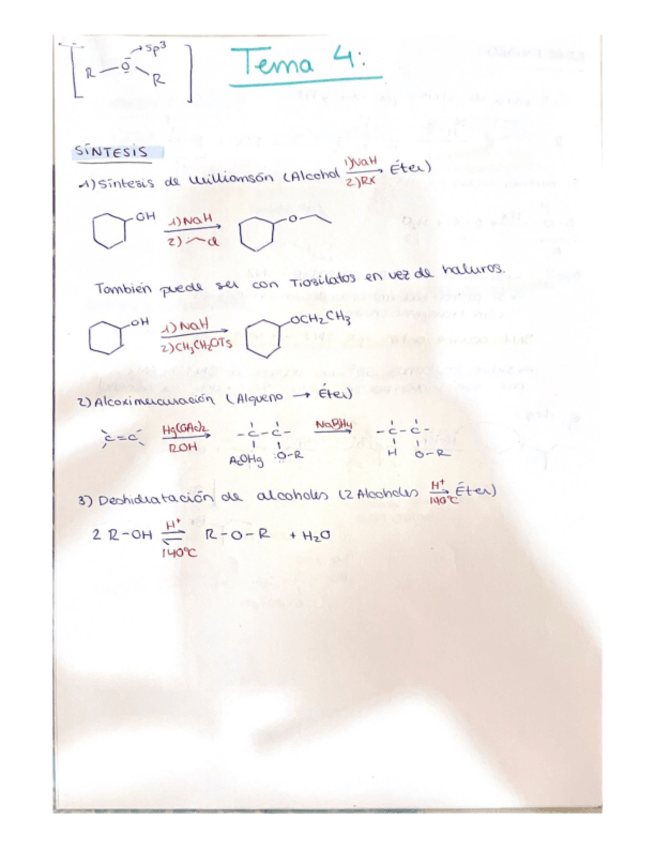 sp³
R-O-R
Tema 4:
SÍNTESIS
1) Síntesis de Williamson (Alcohol 1) NaH 2) RX → Éter)
OH 1) NaH 2) Cl → O
También puede ser con Tiosilatos en vez de haluros.
OH 1) NaH 2) CH₃CH₂OTs → OCH₂CH₃
2) Alcoximercuriación (Alqueno → Éter)
C=C Hg(OAc)₂ ROH → -C-C- AcOHg O-R NaBH₄ → -C-C- H O-R
3) Deshidratación de alcoholes (2 Alcoholes H⁺ 140°C → Éter)
2 R-OH H⁺ ⇌ 140°C R-O-R + H₂O